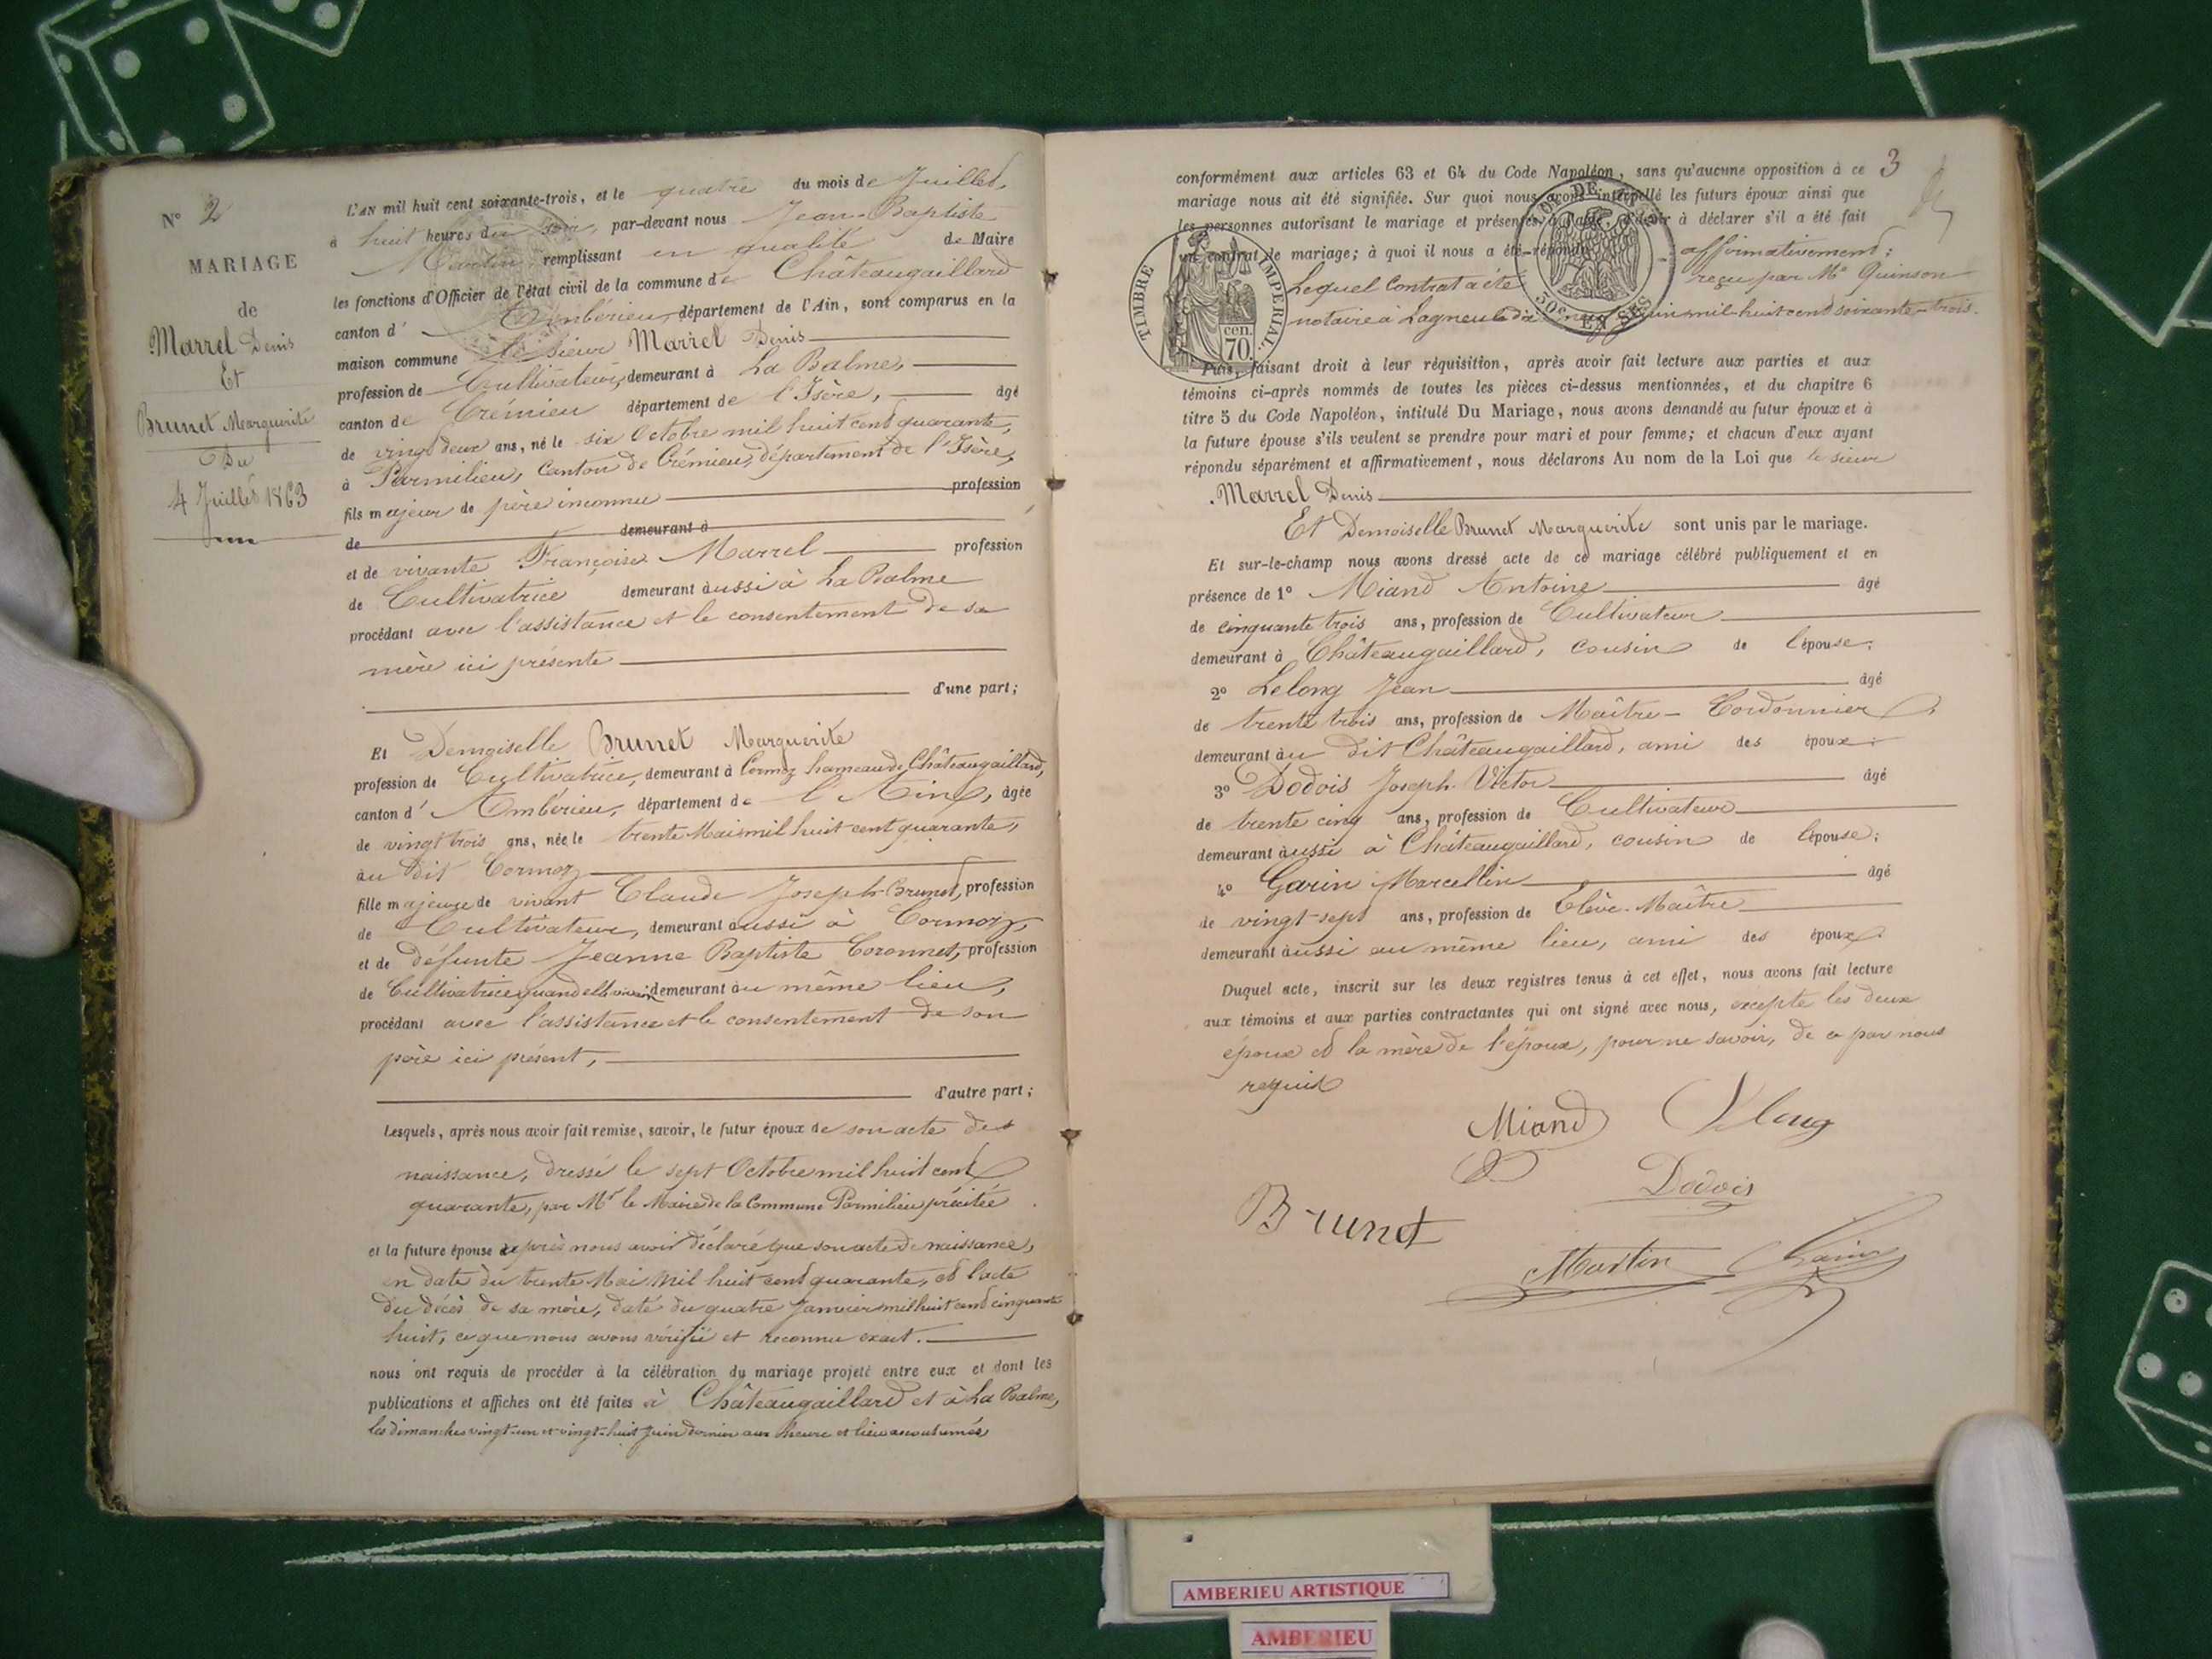 N° 2
MARIAGE
de
Marrel Denis
Et
Brunet Marguerite
Du
4 Juillet 1863
L'AN mil huit cent soixante-trois, et le quatre du mois de Juillet,
à huit heures du soir, par-devant nous Jean-Baptiste
Martin remplissant en qualité de Maire
les fonctions d'Officier de l'état civil de la commune de Châteaugaillard
canton d' Ambérieu, département de l'Ain, sont comparus en la
maison commune le sieur Marrel Denis
profession de Cultivateur, demeurant à La Balme,
canton de Crémieu département de l'Isère, âgé
de vingt deux ans, né le six Octobre mil huit cent quarante,
à Parmilieu, Canton de Crémieu, département de l'Isère,
fils majeur de père inconnu profession
de demeurant à
et de vivante Françoise Marrel profession
de Cultivatrice demeurant aussi à La Balme
procédant avec l'assistance et le consentement de sa
mère ici présente
d'une part;
Et Demoiselle Brunet Marguerite
profession de Cultivatrice, demeurant à Cormoz hameau de Châteaugaillard,
canton d' Ambérieu, département de l'Ain, âgée
de vingt trois ans, née le trente Mai mil huit cent quarante,
au dit Cormoz
fille majeure de vivant Claude Joseph Brunet, profession
de Cultivateur, demeurant aussi à Cormoz,
et de défunte Jeanne Baptiste Coronnet, profession
de Cultivatrice quand elle vivait demeurant au même lieu,
procédant avec l'assistance et le consentement de son
père ici présent,
d'autre part;
Lesquels, après nous avoir fait remise, savoir, le futur époux de son acte de
naissance, dressé le sept Octobre mil huit cent
quarante, par Mr le Maire de la Commune Parmilieu précitée
et la future épouse après nous avoir déclaré que son acte de naissance,
en date du trente Mai mil huit cent quarante, et l'acte
du décès de sa mère, daté du quatre Janvier mil huit cent cinquante
huit, ce que nous avons vérifié et reconnu exact.
nous ont requis de procéder à la célébration du mariage projeté entre eux et dont les
publications et affiches ont été faites à Châteaugaillard et à La Balme,
les dimanches vingt-un et vingt-huit Juin dernier aux heure et lieu accoutumés
3
conformément aux articles 63 et 64 du Code Napoléon, sans qu'aucune opposition à ce
mariage nous ait été signifiée. Sur quoi nous avons interpellé les futurs époux ainsi que
les personnes autorisant le mariage et présentes à l'acte, d'avoir à déclarer s'il a été fait
un contrat de mariage; à quoi il nous a été répondu affirmativement;
Lequel Contrat a été reçu par Me Quinson
notaire à Lagneu le dix neuf Juin mil-huit cent soixante-trois.
TIMBRE IMPERIAL
70 cen.
50c EN SUS
Puis, faisant droit à leur réquisition, après avoir fait lecture aux parties et aux
témoins ci-après nommés de toutes les pièces ci-dessus mentionnées, et du chapitre 6
titre 5 du Code Napoléon, intitulé Du Mariage, nous avons demandé au futur époux et à
la future épouse s'ils veulent se prendre pour mari et pour femme; et chacun d'eux ayant
répondu séparément et affirmativement, nous déclarons Au nom de la Loi que le sieur
Marrel Denis
Et Demoiselle Brunet Marguerite sont unis par le mariage.
Et sur-le-champ nous avons dressé acte de ce mariage célébré publiquement et en
présence de 1° Miand Antoine âgé
de cinquante trois ans, profession de Cultivateur
demeurant à Châteaugaillard, cousin de l'épouse;
2° Lelong Jean âgé
de trente trois ans, profession de Maître-Cordonnier
demeurant au dit Châteaugaillard, ami des époux;
3° Dodois Joseph Victor âgé
de trente cinq ans, profession de Cultivateur
demeurant aussi à Châteaugaillard, cousin de l'épouse;
4° Garin Marcellin âgé
de vingt-sept ans, profession de Elève-Maître
demeurant aussi au même lieu, ami des époux.
Duquel acte, inscrit sur les deux registres tenus à cet effet, nous avons fait lecture
aux témoins et aux parties contractantes qui ont signé avec nous, excepté les deux
époux et la mère de l'époux, pour ne savoir, de ce par nous
requis
Miand Lelong
Dodois
Brunet
Martin Garin
AMBERIEU ARTISTIQUE
AMBERIEU